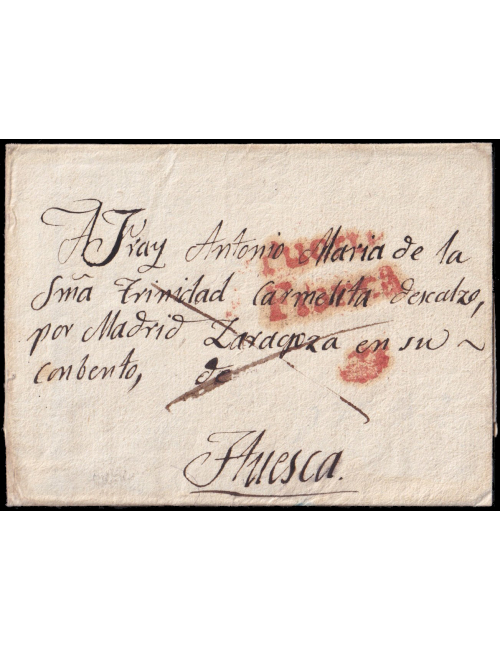 A Fray Antonio Maria de la
Sma Trinidad Carmelita descalzo,
por Madrid, Zaragoza en su ~
conbento, de
Huesca.